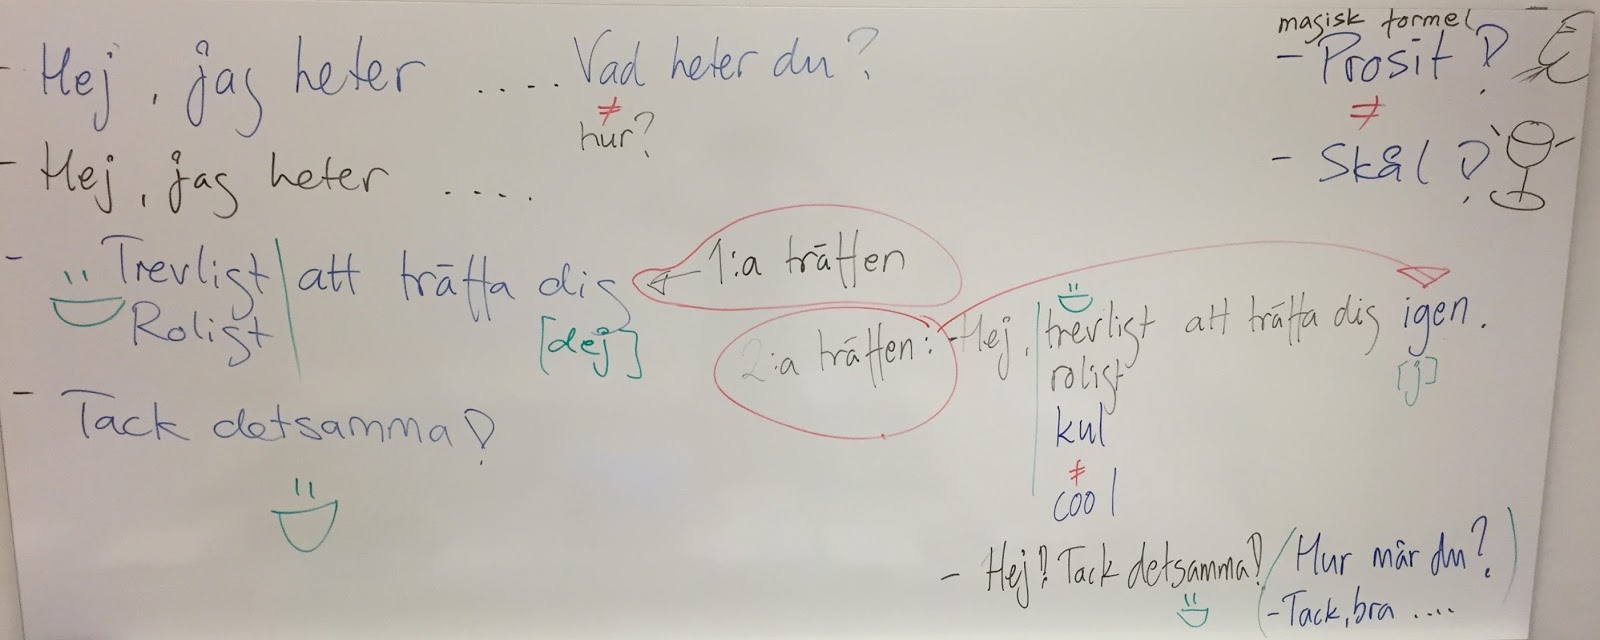 - Hej, jag heter .... Vad heter du?
≠
hur?
- Hej, jag heter ....
- Trevligt att träffa dig ← 1:a träffen
Roligt
[dej]
- Tack detsamma!
magisk formel
- Prosit!
≠
- Skål!
2:a träffen: - Hej, trevligt att träffa dig igen.
roligt
[j]
kul
≠
cool
- Hej! Tack detsamma! / Hur mår du?
(- Tack, bra ....